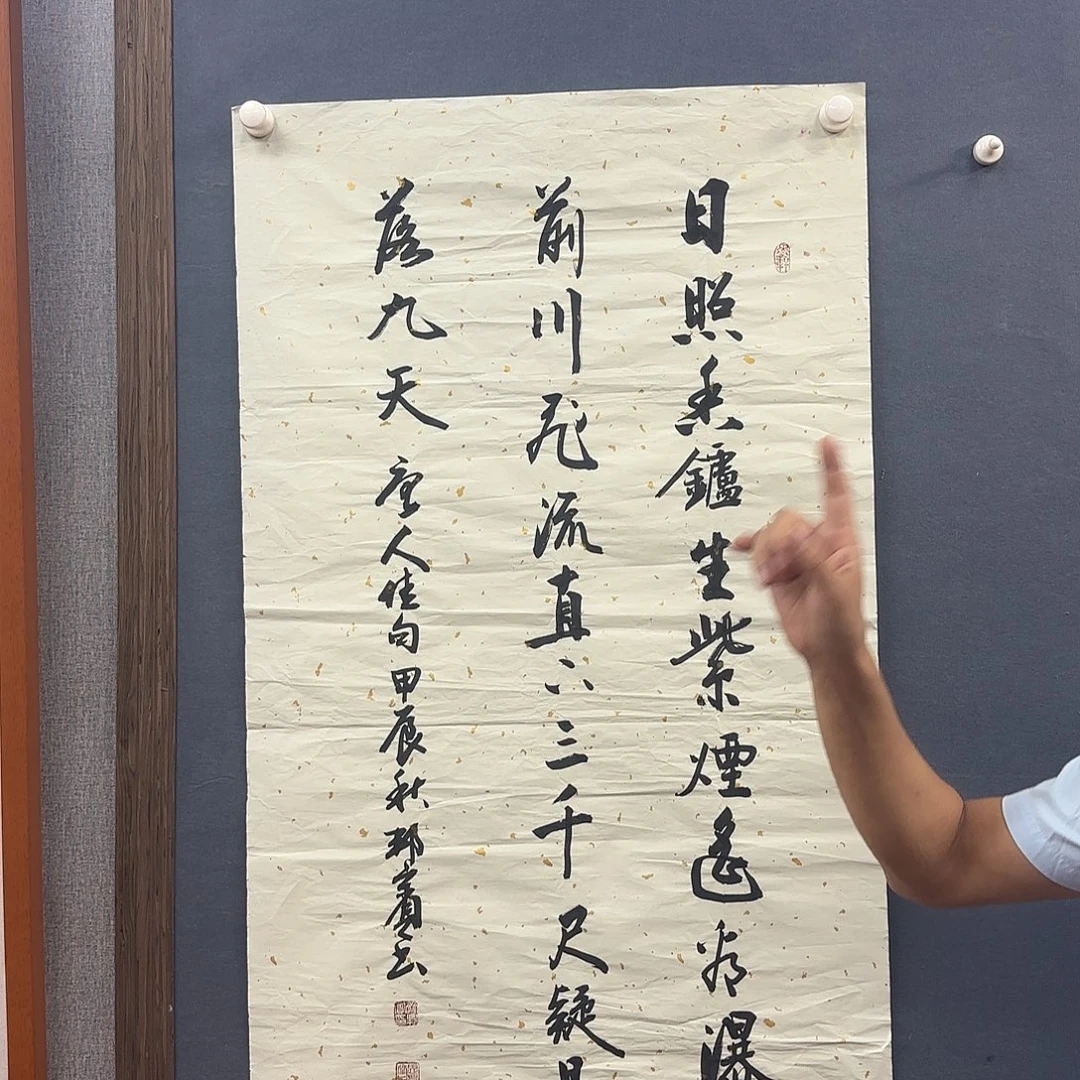 日照香鑪生紫煙遙看瀑
前川飛流直下三千尺疑
落九天 唐人佳句甲辰秋 賓書